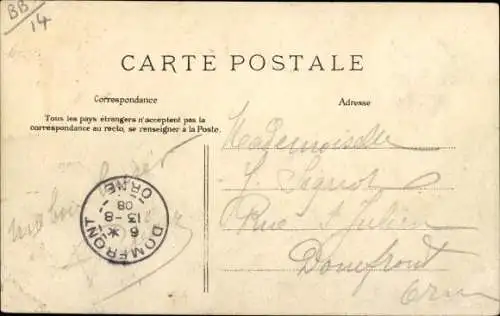 BB
14
CARTE POSTALE
Correspondance
Adresse
Tous les pays étrangers n'acceptent pas la
correspondance au recto, se renseigner à la Poste.
Mademoiselle
Rue St Julien
Domfront
Orne
DOMFRONT
ORNE
6 *
13 - 8
08